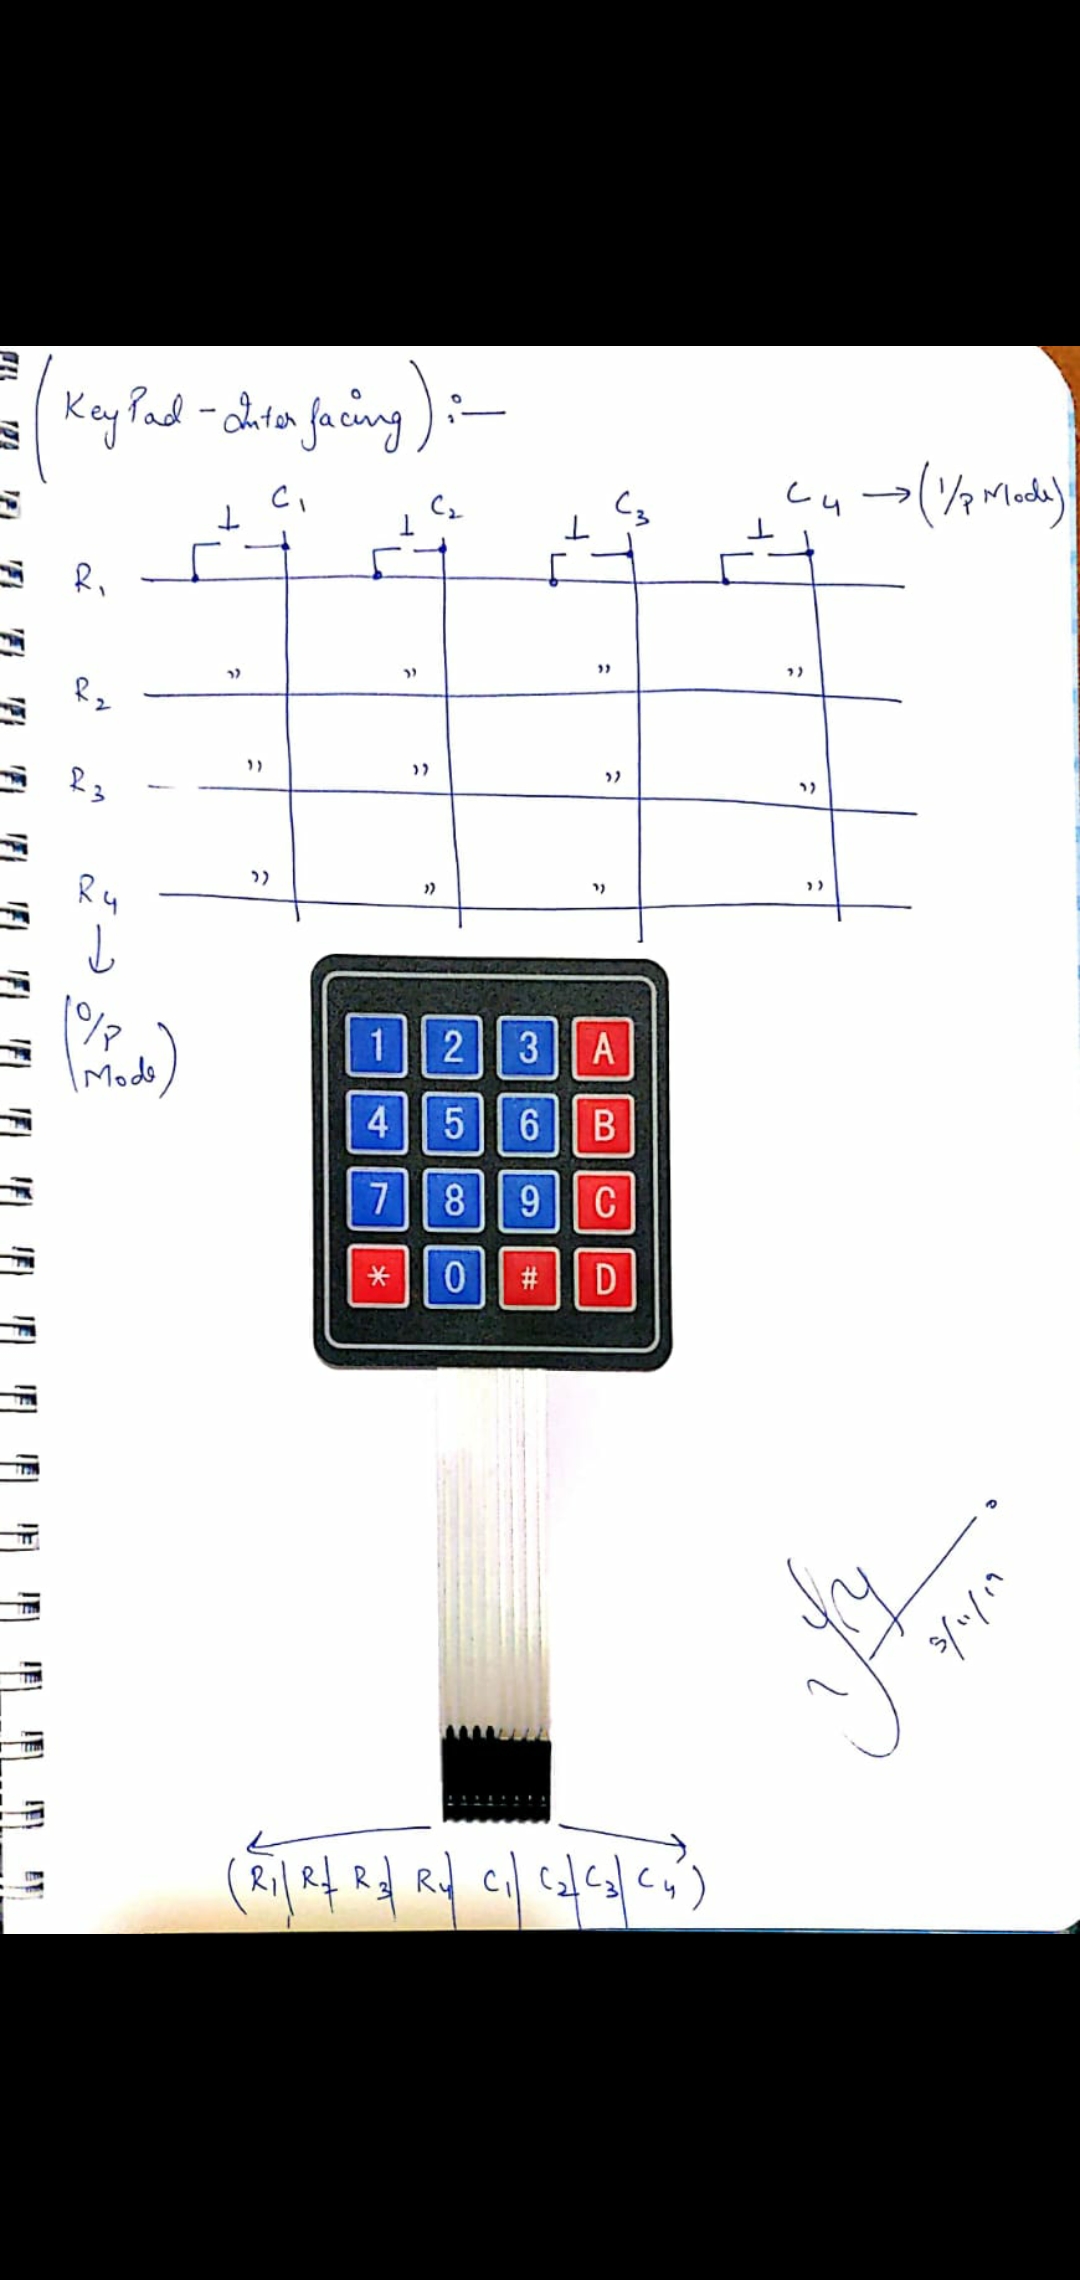 (KeyPad - Interfacing) :-
C1 C2 C3 C4 → (I/P Mode)
R1
R2 " " " "
R3 " " " "
R4 " " " "
↓
(O/P
Mode)
1 2 3 A
4 5 6 B
7 8 9 C
* 0 # D
(R1| R2| R3| R4| C1| C2| C3| C4)